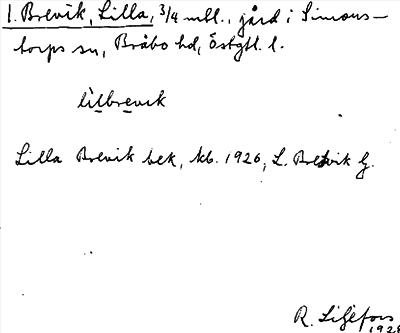 1. Brevik, Lilla, 3/4 mtl., gård i Simons-
torps sn, Bråbo hd, Östgtl. l.
lìlbrevik
Lilla Brevik bek, kb. 1926, L. Brevik G.
R. Liljefors
1928